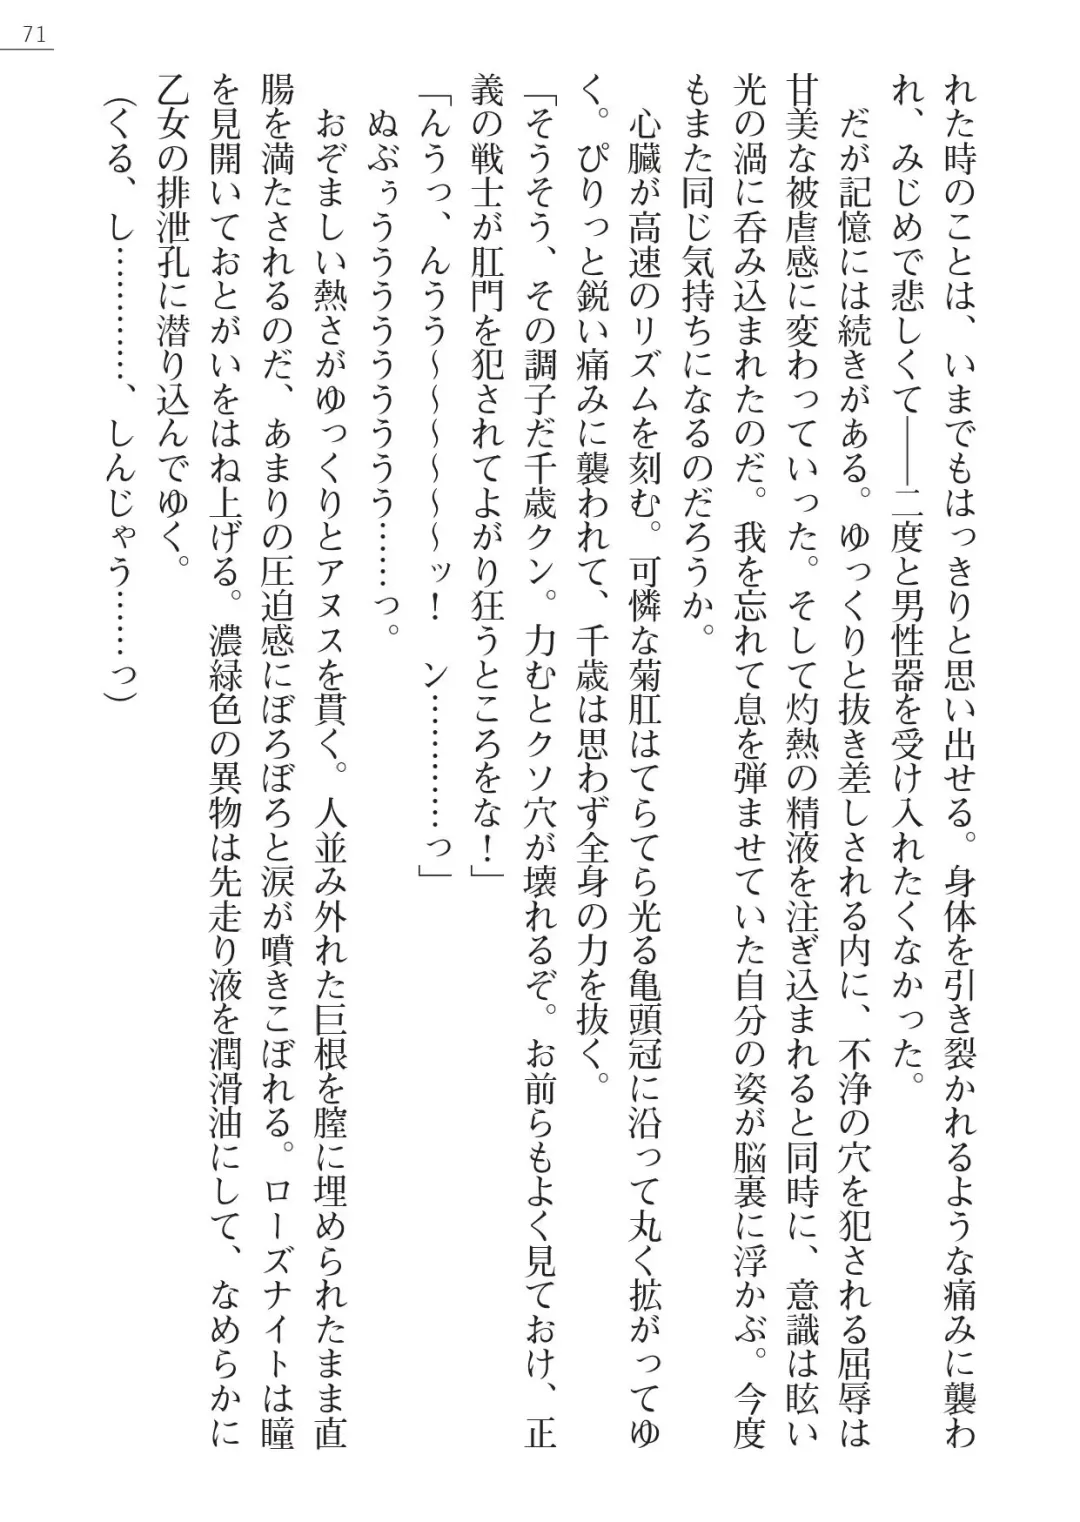 71
れた時のことは、いまでもはっきりと思い出せる。身体を引き裂かれるような痛みに襲わ
れ、みじめで悲しくて――二度と男性器を受け入れたくなかった。
だが記憶には続きがある。ゆっくりと抜き差しされる内に、不浄の穴を犯される屈辱は
甘美な被虐感に変わっていった。そして灼熱の精液を注ぎ込まれると同時に、意識は眩い
光の渦に呑み込まれたのだ。我を忘れて息を弾ませていた自分の姿が脳裏に浮かぶ。今度
もまた同じ気持ちになるのだろうか。
心臓が高速のリズムを刻む。可憐な菊肛はてらてら光る亀頭冠に沿って丸く拡がってゆ
く。ぴりっと鋭い痛みに襲われて、千歳は思わず全身の力を抜く。
「そうそう、その調子だ千歳クン。力むとクソ穴が壊れるぞ。お前らもよく見ておけ、正
義の戦士が肛門を犯されてよがり狂うところをな！」
「んうっ、んうう～～～～～～ッ！　ン…………っ」
ぬぶぅうううううううう……っ。
おぞましい熱さがゆっくりとアヌスを貫く。人並み外れた巨根を膣に埋められたまま直
腸を満たされるのだ、あまりの圧迫感にぼろぼろと涙が噴きこぼれる。ローズナイトは瞳
を見開いておとがいをはね上げる。濃緑色の異物は先走り液を潤滑油にして、なめらかに
乙女の排泄孔に潜り込んでゆく。
（くる、し…………、しんじゃう……っ）